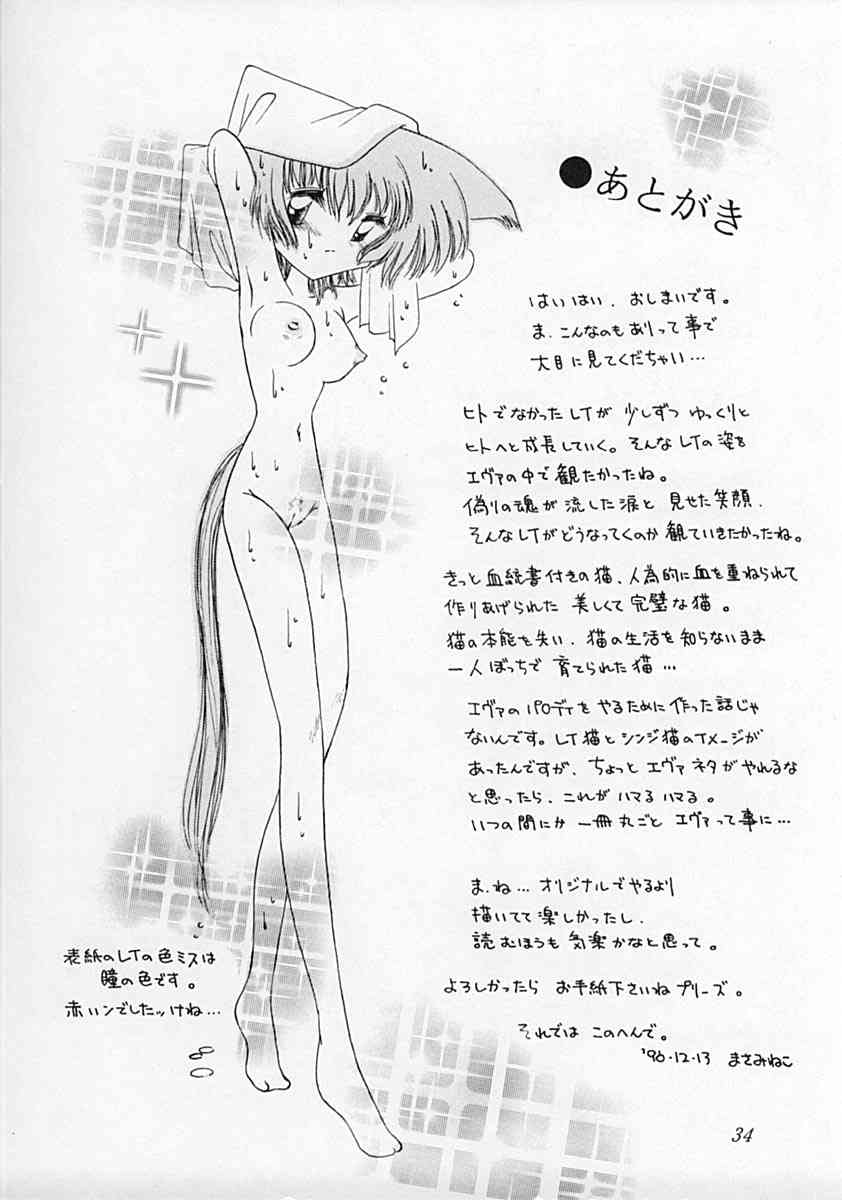 ●あとがき
はいはい、おしまいです。
ま、こんなのもありって事で
大目に見てくだちゃい…
ヒトでなかったレイが 少しずつ ゆっくりと
ヒトへと成長していく。そんなレイの姿を
エヴァの中で観たかったね。
偽りの魂が流した涙と 見せた笑顔、
そんなレイがどうなってくのか 観ていきたかったね。
きっと血統書付きの猫、人為的に血を重ねられて
作りあげられた 美しくて完璧な猫。
猫の本能を失い、猫の生活を知らないまま
一人ぼっちで 育てられた猫…
エヴァのパロディをやるために作った話じゃ
ないんです。レイ猫とシンジ猫のイメージが
あったんですが、ちょっと エヴァネタがやれるな
と思ったら、これがハマるハマる。
いつの間にか 一冊丸ごと エヴァって事に…
ま、ね… オリジナルでやるより
描いてて楽しかったし、
読むほうも 気楽かなと思って。
よろしかったら お手紙下さいね プリーズ。
それでは このへんで。
'96.12.13 まさみねこ
表紙のレイの色ミスは
瞳の色です。
赤いンでしたッけね…
34